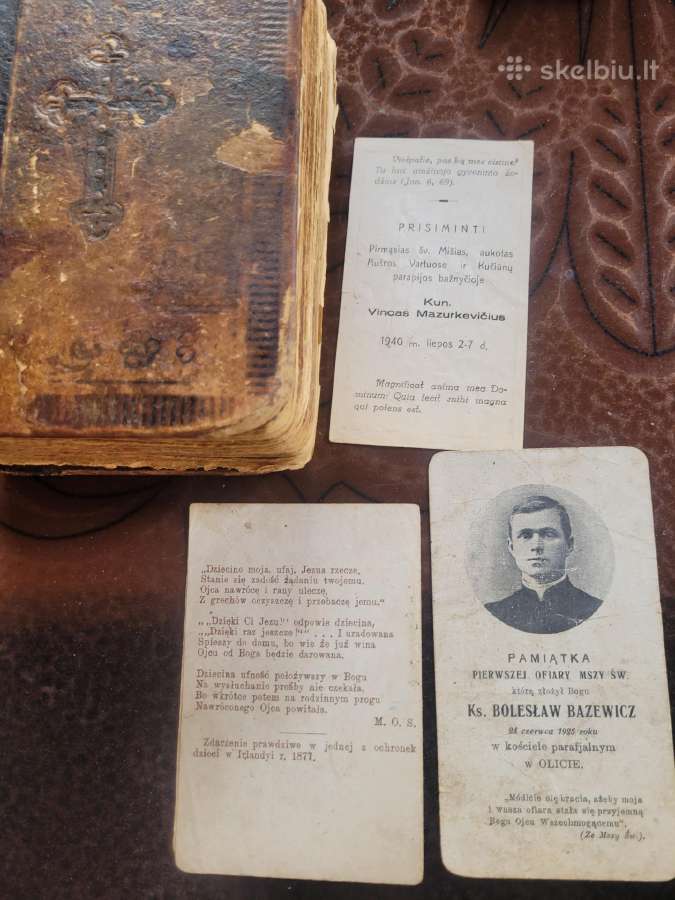 skelbiu.lt
Viešpatie, pas ką mes eisime?
Tu turi amžinojo gyvenimo žo-
džius (Jon. 6, 69).
PRISIMINTI
Pirmąsias šv. Mišias, aukotas
Aušros Vartuose ir Kučiūnų
parapijos bažnyčioje
Kun.
Vincas Mazurkevičius
1940 m. liepos 2-7 d.
Magnificat anima mea Do-
minum! Quia fecit mihi magna
qui potens est.
„Dziecino moja, ufaj, Jezus rzecze,
Stanie się zadość żądaniu twojemu.
Ojca nawrócę i rany uleczę,
Z grzechów oczyszczę i przebaczę jemu."
„„Dzięki Ci Jezu!"" odpowie dziecina,
„„Dzięki raz jeszcze!"" . . . I uradowana
Spieszy do domu, bo wie że już wina
Ojcu od Boga będzie darowana.
Dziecina ufność położywszy w Bogu
Na wysłuchanie prośby nie czekała.
Bo wkrótce potem na rodzinnym progu
Nawróconego Ojca powitała.
M. O. S.
Zdarzenie prawdziwe w jednej z ochronek
dzieci w Irlandyi r. 1877.
PAMIĄTKA
PIERWSZEJ OFIARY MSZY ŚW.
którą złożył Bogu
Ks. BOLESŁAW BAZEWICZ
21 czerwca 1925 roku
w kościele parafjalnym
w OLICIE.
„Módlcie się bracia, ażeby moja
i wasza ofiara stała się przyjemną
Bogu Ojcu Wszechmogącemu".
(Ze Mszy Św.).